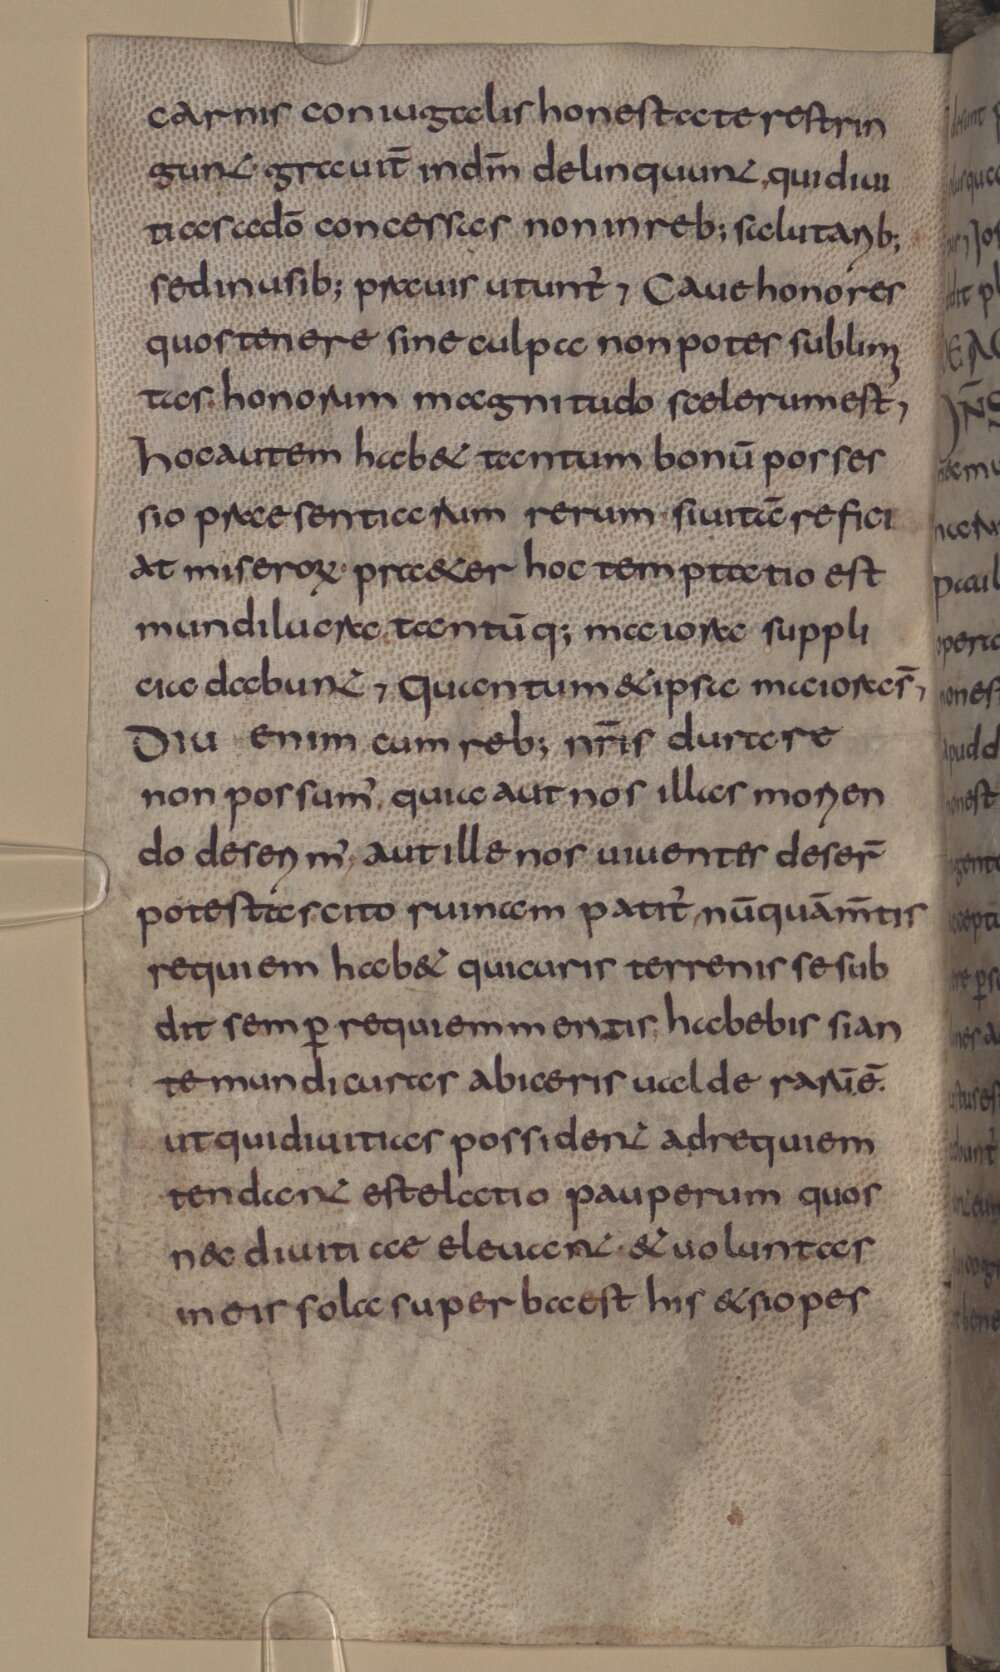 carnis coniugalis honestate restrin
gunt grauit̄ in dm̄ delinquunt. qui diui
tias ado̅ concessas non in reb; salutarib;
sed in usib; prauis utunt᷑, Caue honores
quos tenere sine culpa non potes sublimi
tas. honorum magnitudo scelerum est,
hoc autem habet tantum bonū posses
sio praesentiarum rerum. si uitā refici
at miseroꝝ. praeter hoc temptatio est
mundi lucra. tantū q; maiora suppli
cia dabunt, Quantum et ipsa maiora s̄,
Diu enim cum reb; nr̄is durare
non possum᷒. quia aut nos illas morien
do deserim᷒, aut ille nos uiuentes deser̄
potestas. cito ruinam patit᷑, nū quā m̄tis
requiem habet qui curis terrenis se sub
dit semꝑ requiem mentis habebis si a n
te mundi curas abiceris ualde rarū ē.
ut qui diuitias possident ad requiem
tendant est elatio pauperum quos
nec diuitiae eleuant. et uoluntas
in eis sola superba est his et si opes